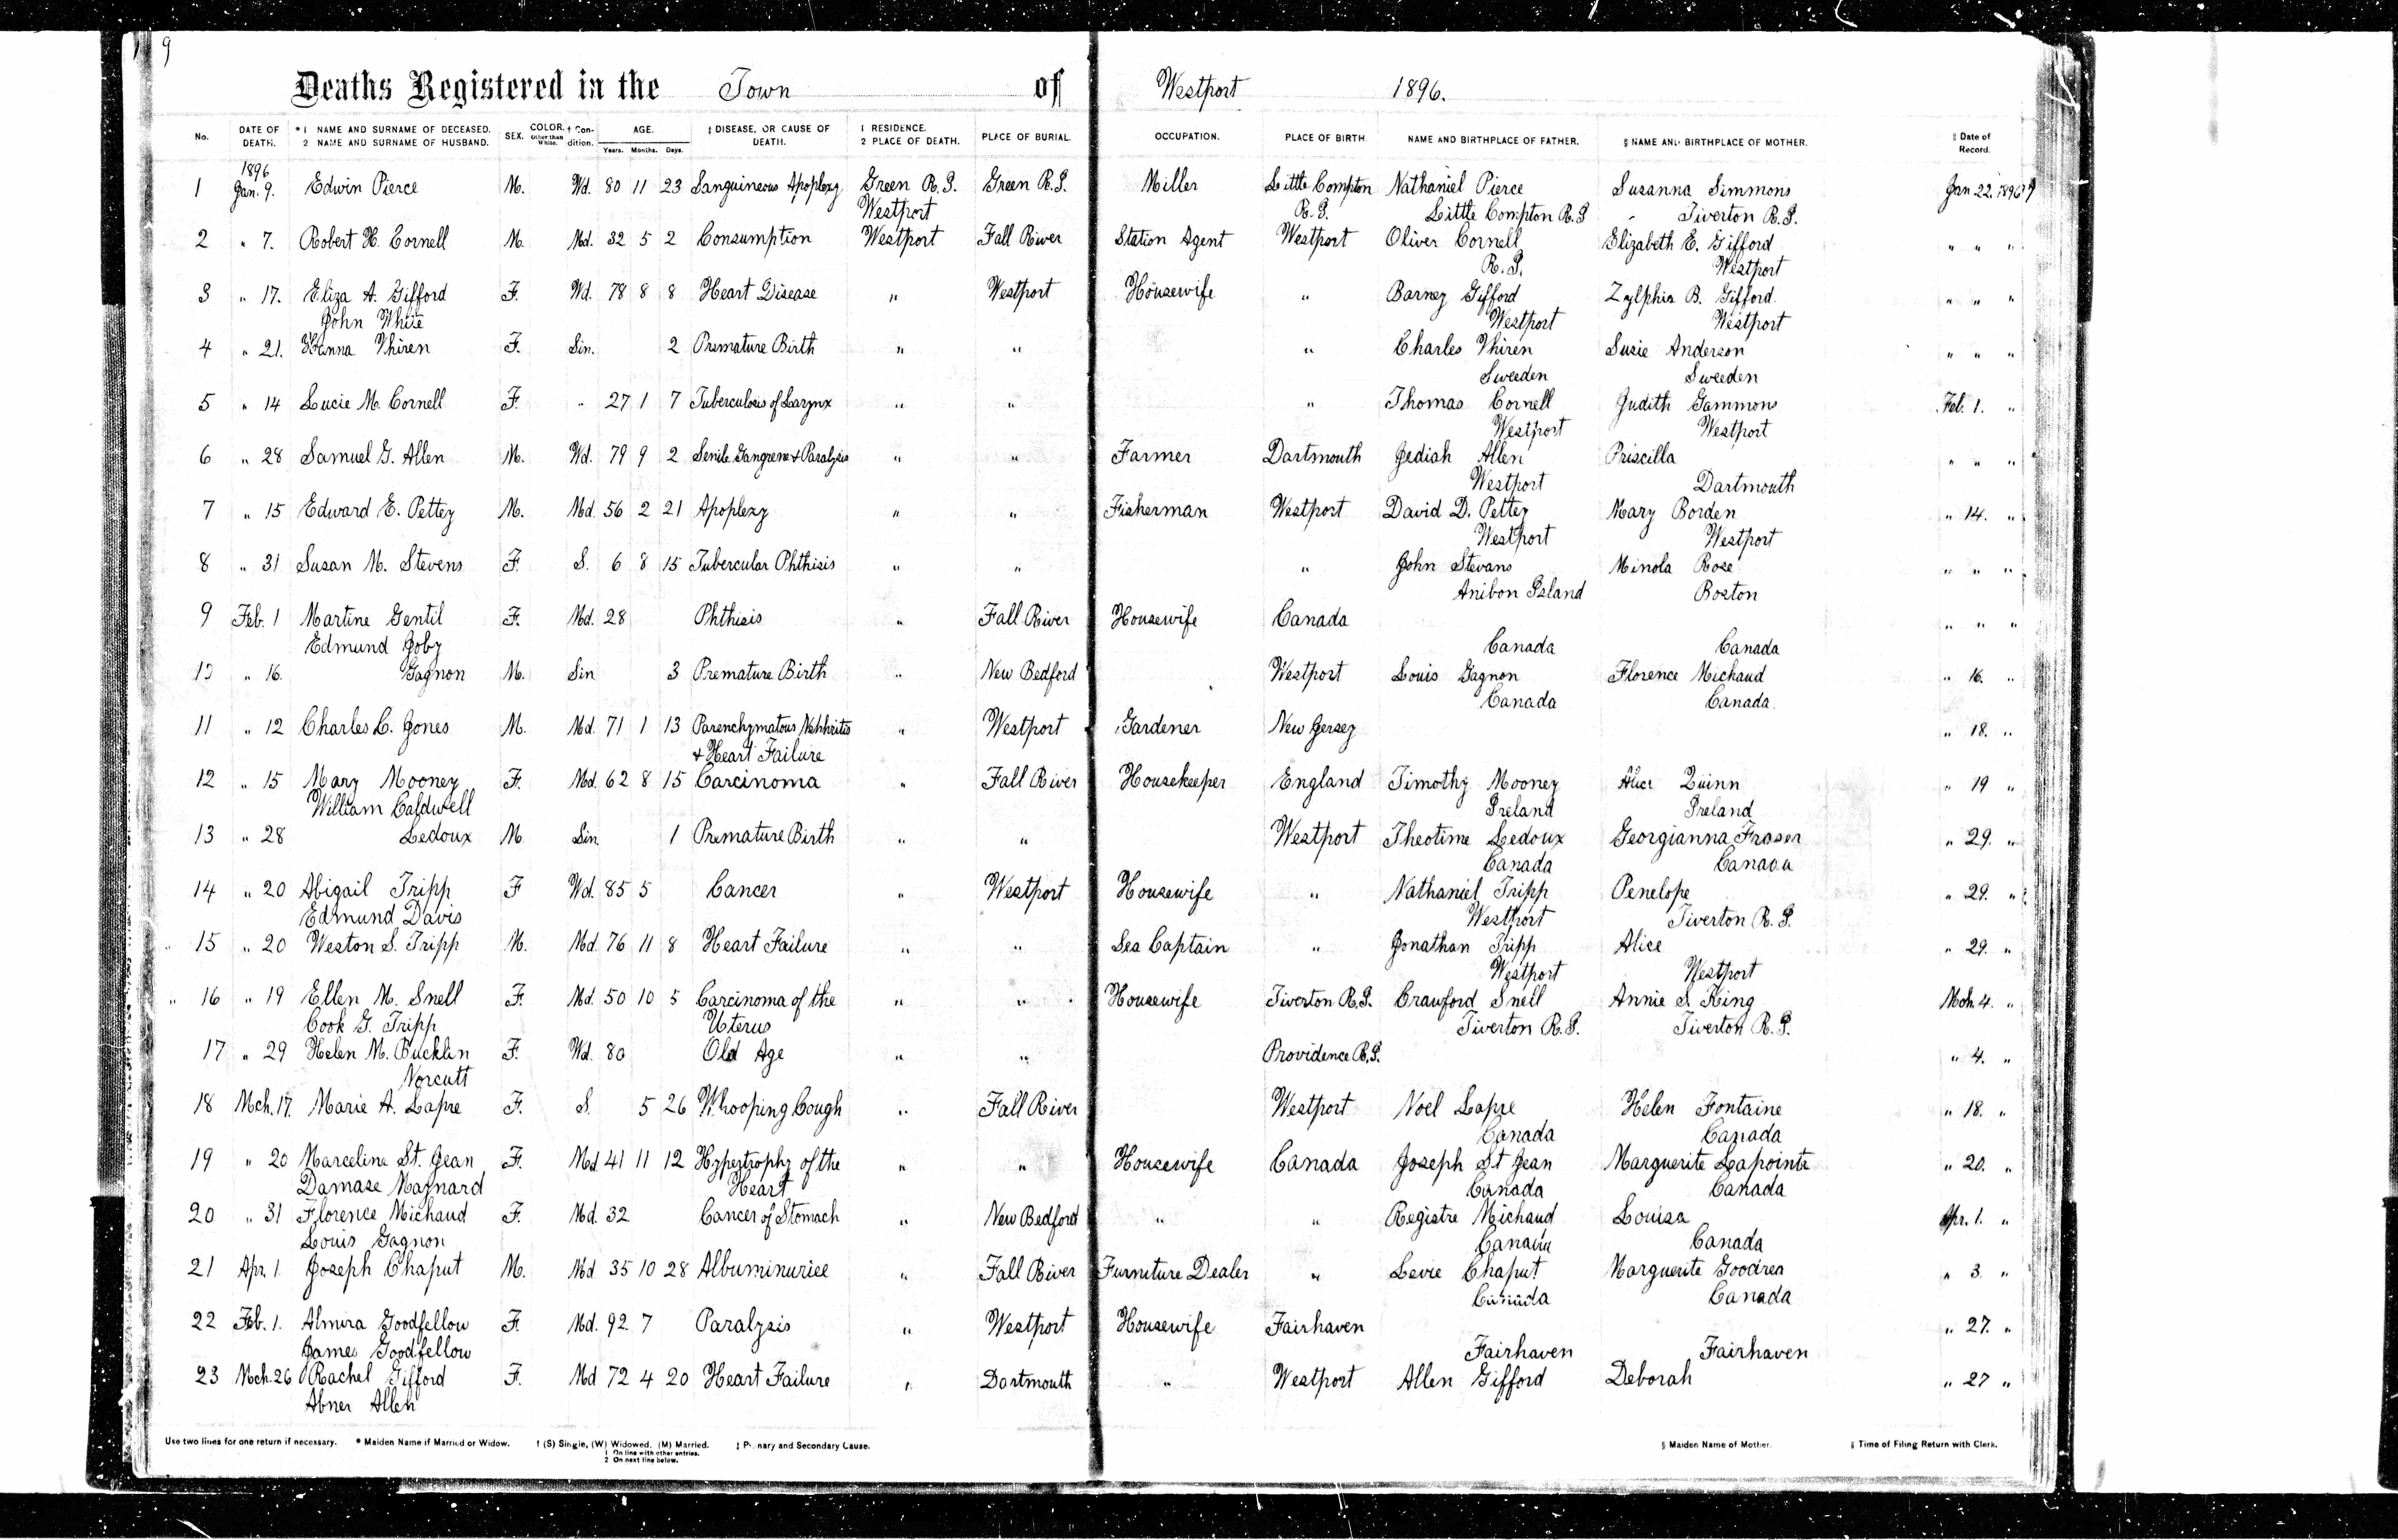 9
Deaths Registered in the Town of Westport 1896.
No. DATE OF DEATH. * 1 NAME AND SURNAME OF DECEASED. 2 NAME AND SURNAME OF HUSBAND. SEX. COLOR. Other than White. † Condition. AGE. Years. Months. Days. ‡ DISEASE, OR CAUSE OF DEATH. 1 RESIDENCE. 2 PLACE OF DEATH. PLACE OF BURIAL. OCCUPATION. PLACE OF BIRTH. NAME AND BIRTHPLACE OF FATHER. § NAME AND BIRTHPLACE OF MOTHER. ‖ Date of Record.
1896
1 Jan. 9. Edwin Pierce M. Wd. 80 11 23 Sanguineous Apoplexy Green R.I. Green R.I. Miller Little Compton Nathaniel Pierce Susanna Simmons Jan 22. 1896
Westport R.I. Little Compton R.I. Tiverton R.I.
2 " 7. Robert H. Cornell M. Md. 32 5 2 Consumption Westport Fall River Station Agent Westport Oliver Cornell Elizabeth E. Gifford " " "
R.I. Westport
3 " 17. Eliza A. Gifford F. Wd. 78 8 8 Heart Disease " Westport Housewife " Barney Gifford Zylphia B. Gifford " " "
John White Westport Westport
4 " 21. Thiren F. Sin. 2 Premature Birth " " " Charles Thiren Susie Anderson " " "
Sweeden Sweeden
5 " 14 Lucie M. Cornell F. " 27 1 7 Tuberculosis of Larynx " " " Thomas Cornell Judith Gammons Feb. 1. "
Westport Westport
6 " 28 Samuel G. Allen M. Wd. 79 9 2 Senile Gangrene & Paralysis " " Farmer Dartmouth Jediah Allen Priscilla " " "
Westport Dartmouth
7 " 15 Edward E. Pettey M. Md. 56 2 21 Apoplexy " " Fisherman Westport David D. Pettey Mary Borden " 14. "
Westport Westport
8 " 31 Susan M. Stevens F. S. 6 8 15 Tubercular Phthisis " " " John Stevans Minola Rose " " "
Anibon Island Boston
9 Feb. 1 Martine Gentil F. Md. 28 Phthisis " Fall River Housewife Canada " " "
Edmund Joby Canada Canada
10 " 16. Gagnon M. Sin 3 Premature Birth " New Bedford Westport Louis Gagnon Florence Michaud " 16. "
Canada Canada
11 " 12 Charles C. Jones M. Md. 71 1 13 Parenchymatous Nephritis " Westport Gardener New Jersey " 18. "
& Heart Failure
12 " 15 Mary Mooney F. Md. 62 8 15 Carcinoma " Fall River Housekeeper England Timothy Mooney Alice Quinn " 19 "
William Caldwell Ireland Ireland
13 " 28 Ledoux M Sin. 1 Premature Birth " " Westport Theotime Ledoux Georgianna Fraser " 29. "
Canada Canada
14 " 20 Abigail Tripp F Wd. 85 5 Cancer " Westport Housewife " Nathaniel Tripp Penelope " 29. "
Edmund Davis Westport Tiverton R.I.
15 " 20 Weston S. Tripp M. Md. 76 11 8 Heart Failure " " Sea Captain " Jonathan Tripp Alice " 29. "
Westport Westport
16 " 19 Ellen M. Snell F. Md. 50 10 5 Carcinoma of the " " Housewife Tiverton R.I. Crawford Snell Annie S. King Mch. 4. "
Cook G. Tripp Uterus Tiverton R.I. Tiverton R.I.
17 " 29 Helen M. Bucklin F. Wd. 80 Old Age " " Providence R.I. " 4. "
Norcutt
18 Mch. 17. Marie A. Lapre F. S. 5 26 Whooping Cough " Fall River Westport Noel Lapre Helen Fontaine " 18. "
Canada Canada
19 " 20 Marceline St. Jean F. Md 41 11 12 Hypertrophy of the " " Housewife Canada Joseph St Jean Marguerite Lapointe " 20. "
Damase Maynard Heart Canada Canada
20 " 31 Florence Michaud F. Md. 32 Cancer of Stomach " New Bedford " " Registre Michaud Louisa Apr. 1. "
Louis Gagnon Canada Canada
21 Apr. 1. Joseph Chaput M. Md 35 10 28 Albuminuriee " Fall River Furniture Dealer " Levie Chaput Marguerite Goodrea " 3. "
Canada Canada
22 Feb. 1. Almira Goodfellow F. Md. 92 7 Paralysis " Westport Housewife Fairhaven " 27. "
James Goodfellow Fairhaven Fairhaven
23 Mch. 26 Rachel Gifford F. Md 72 4 20 Heart Failure " Dartmouth " Westport Allen Gifford Deborah " 27 "
Abner Allen
Use two lines for one return if necessary. * Maiden Name if Married or Widow. † (S) Single, (W) Widowed, (M) Married. ‡ Primary and Secondary Cause. § Maiden Name of Mother. ‖ Time of Filing Return with Clerk.
1 On line with other entries.
2 On next line below.